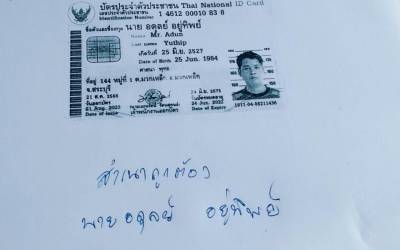 บัตรประจำตัวประชาชน Thai National ID Card
เลขประจำตัวประชาชน 1 4612 00010 83 8
Identification Number
ชื่อตัวและชื่อสกุล นาย อดุลย์ อยู่ทิพย์
Name Mr. Adun
Last name Yuthip
เกิดวันที่ 25 มิ.ย. 2527
Date of Birth 25 Jun. 1984
ศาสนา พุทธ
ที่อยู่ 144 หมู่ที่ 1 ต.มวกเหล็ก อ.มวกเหล็ก
จ.สระบุรี
วันออกบัตร
Date of Issue
เจ้าพนักงานออกบัตร
24 มิ.ย. 2575
วันบัตรหมดอายุ
24 Jun. 2032
Date of Expiry
สำเนาถูกต้อง
นาย อดุลย์ อยู่ทิพย์